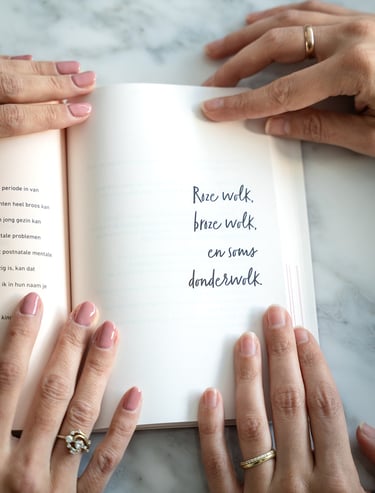 periode in van
nten heel broos kan
jong gezin kan
tale problemen
postnatale mentale
tig is, kan dat
ik in hun naam je
Roze wolk,
broze wolk,
en soms
donderwolk.